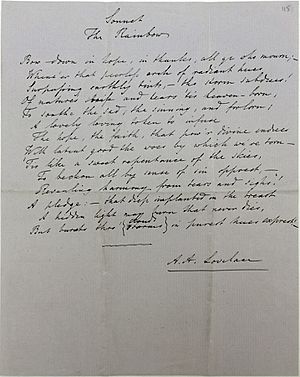 115
Sonnet
The Rainbow
Bow down in hope, in thanks, all ye who mourn;—
Where'er that peerless arch of radiant hues
Surpassing earthly tints,— the storm subdues!
Of nature's strife and tears 'tis heaven-born,
To soothe the sad, the sinning, and forlorn;
A lovely loving token to infuse
The hope, the faith, that pow'r divine endues
With latent good the woes by which we're torn.—
'Tis like a sweet repentance of the skies,
To beckon all by sense of sin opprest,—
Revealing harmony from tears and sighs!
A pledge:— that deep implanted in the breast
A hidden light may burn that never dies,
But bursts thro' { clouds
storms } in purest hues exprest!
A. A. Lovelace